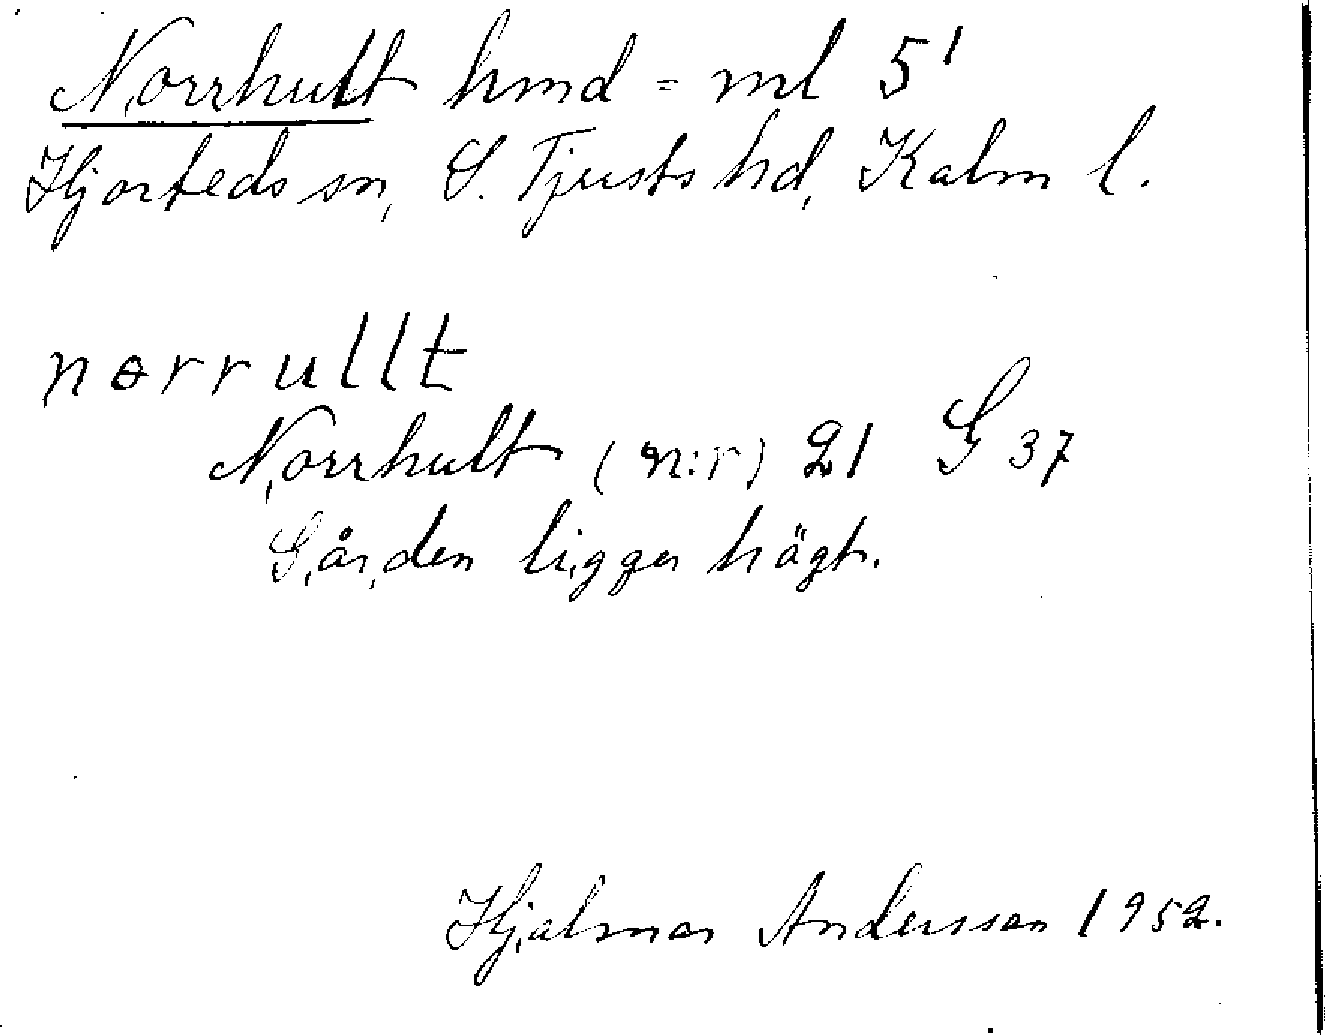 Norrhult hmd = ml 5¹
Hjorteds sn, S. Tjusts hd, Kalm l.
nɵrrullt
Norrhult (n:r) 21 G 37
Gården ligger högt.
Hjalmar Andersson 1952.